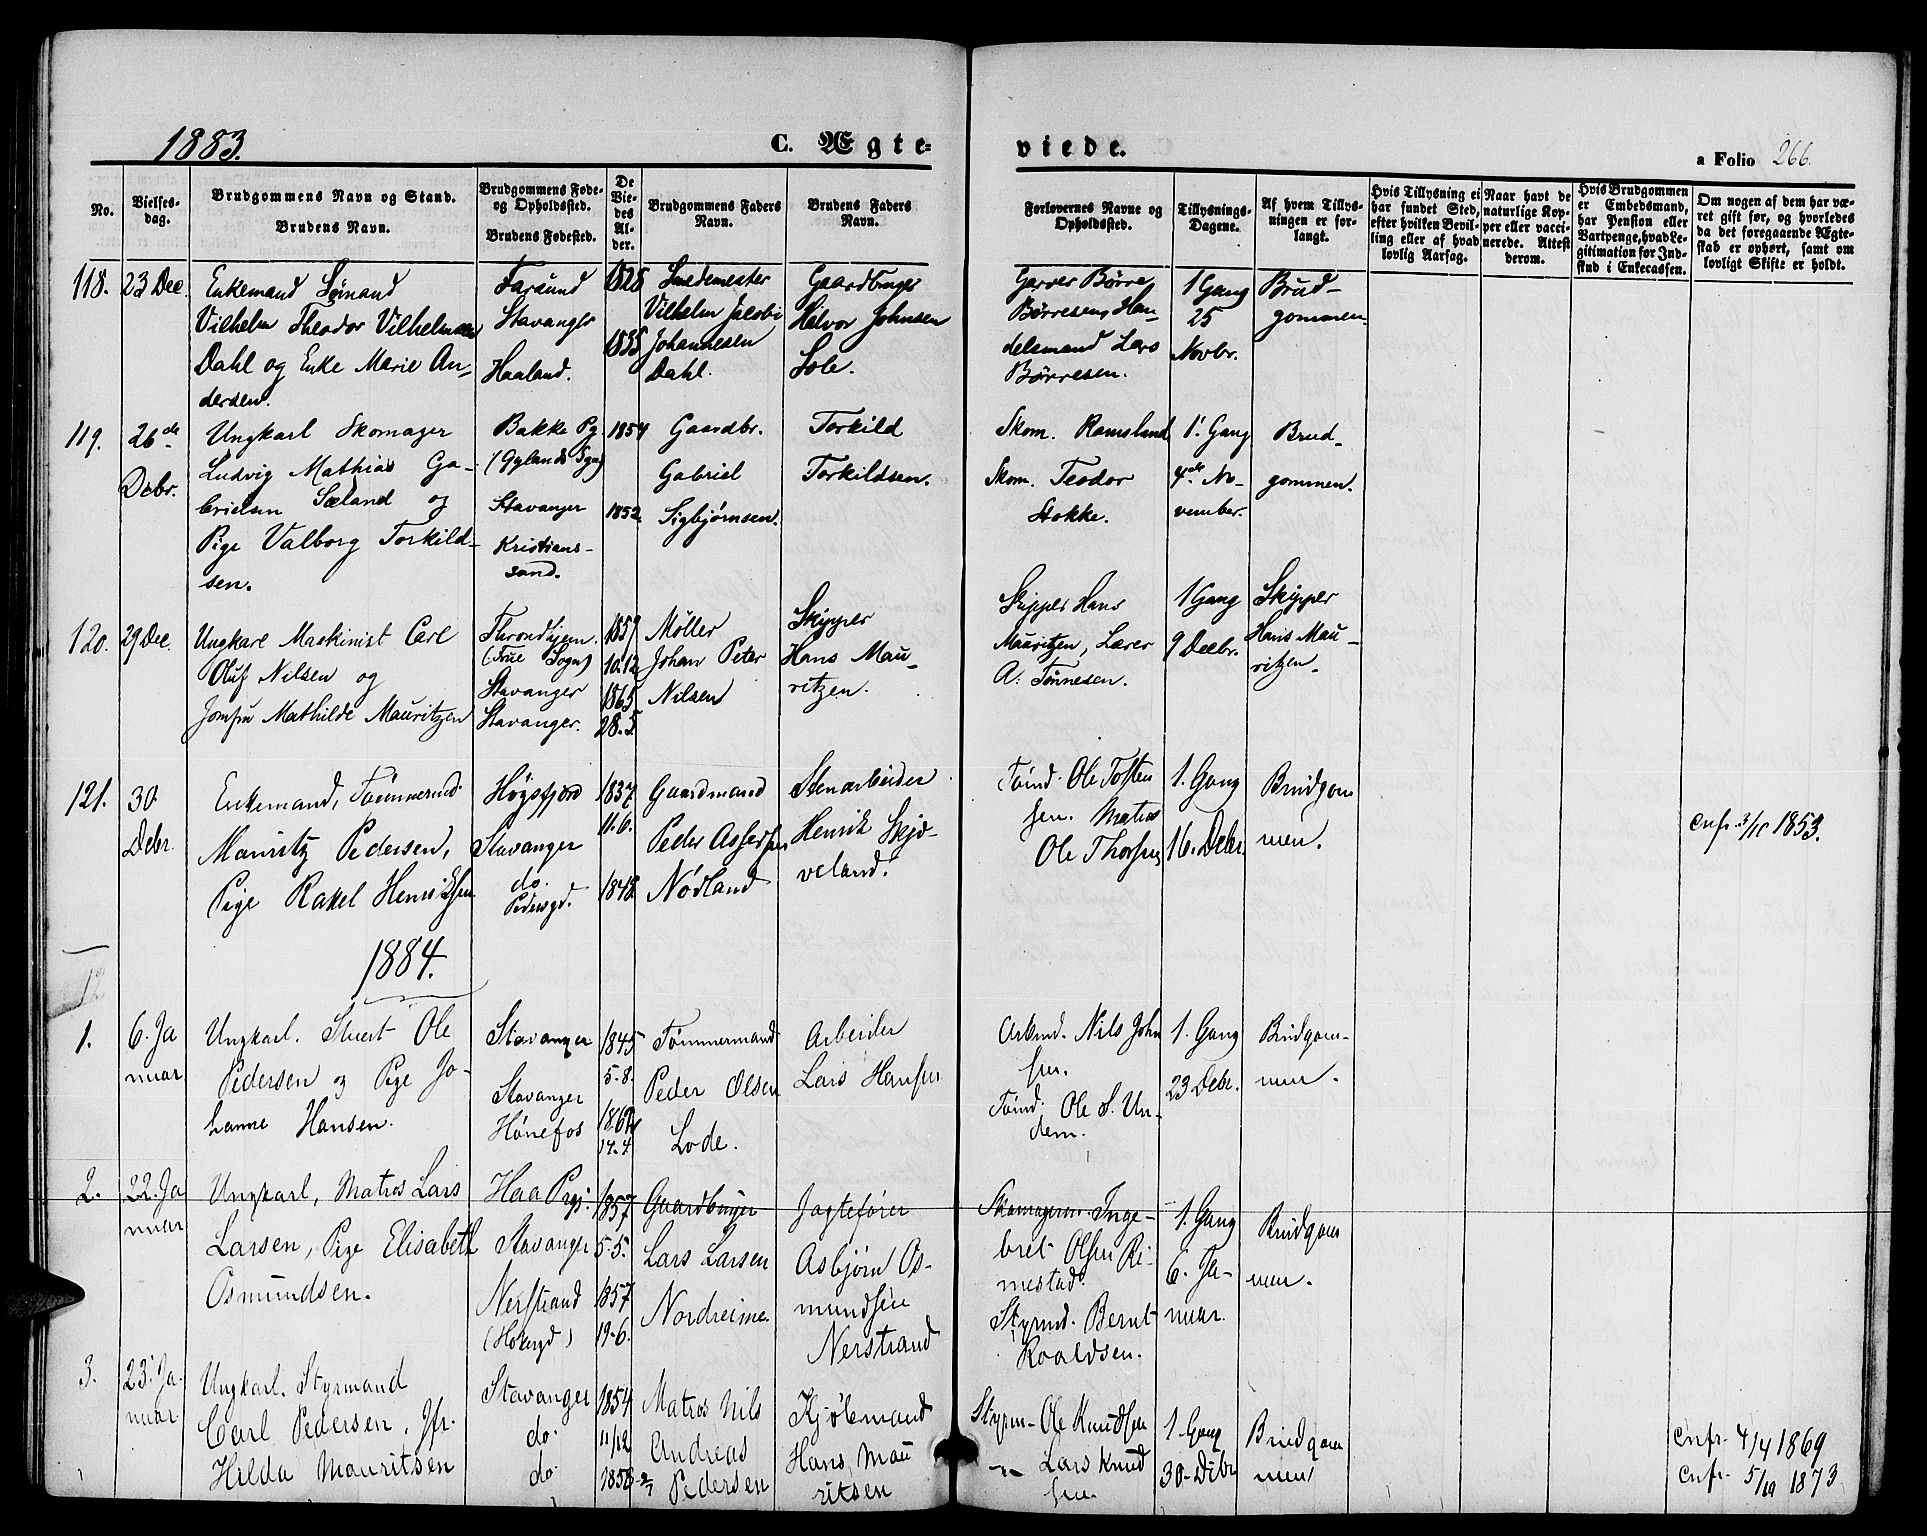 1883.
C. Ægte=
viede.
a Folio 266.
No.
Vielses-
dag.
Brudgommens Navn og Stand.
Brudens Navn.
Brudgommens Føde-
og Opholdssted.
Brudens Fødested.
De
Vie-
des
Al-
der.
Brudgommens Faders
Navn.
Brudens Faders
Navn.
Forlovernes Navne og
Opholdssted.
Tillysnings-
Dagene.
Af hvem Tillys-
ningen er for-
langt.
Hvis Tillysning ei
har fundet Sted,
efter hvilken Bevil-
ling eller af hvad
lovlig Aarsag.
Naar havt de
naturlige Kop-
per eller vacci-
nerede. Attest
derom.
Hvis Brudgommen
er Embedsmand,
har Pension eller
Vartpenge, hvad Le-
gitimation for Ind-
skud i Enkecassen.
Om nogen af dem har væ-
ret gift før, og hvorledes
da det foregaaende Ægte-
skab er ophørt, samt om
lovligt Skifte er holdt.
118.
23 Dec.
Enkemand Lønand
Vilhelm Theodor Vilhelmsen
Dahl og Enke Marie An-
dersen.
Farsund
Stavanger
Haaland.
1828
1835
Smedemester
Vilhelm Jacobi
Johannesen
Dahl.
Gaardbruger
Halvor Johnsen
Sole.
Garver Børre
Børresen, Han-
delsmand Lars
Børresen.
1 Gang
25
Novbr.
Brud-
gommen.
119.
26de
Debr.
Ungkarl Skomager
Ludvig Mathias Ga-
brielsen Sæland og
Pige Valborg Torkild-
sen.
Bakke Pg.
(Gylands Sgn)
Stavanger
Kristians-
sand.
1854
1852.
Gaardbr.
Gabriel
Sigbjørnsen.
Torkild
Torkildsen.
Skom. Ramsland
Skom. Teodor
Stokke.
1. Gang
4de No-
vember.
Brud-
gommen.
120.
29 Dec.
Ungkarl Maskinist Carl
Oluf Nilsen og
Jomfru Mathilde Mauritzen
Throndhjem.
(Frue Sogn)
Stavanger
Stavanger.
1859
10.12
1865
28.5.
Møller
Johan Peter
Nilsen
Skipper
Hans Mau-
ritzen.
Skipper Hans
Mauritzen, Lærer
A. Tønnesen.
1 Gang
9 Decbr.
Skipper
Hans Mau-
ritzen.
121.
30.
Debr.
Enkemand, Tømmermd.
Mauritz Pedersen,
Pige Rakel Henriksen
Høgsfjord
Stavanger
do.
Pedersgd.
1837
11.6.
1848.
Gaardmand
Peder Assersen
Nödland
Stenarbeider
Henrik Skjæ-
veland.
Tømd. Ole Tosten
sen. Matros
Ole Thorsen
1. Gang
16. Debr.
Brudgom
men.
Cnfr. 3/10 1853.
1884.
1.
6. Ja
nuar
Ungkarl. Stuert Ole
Pedersen og Pige Jo-
hanne Hansen.
Stavanger
Stavanger
Hønefos
1845
5-8.
14.4
Tømmermand
Peder Olsen
Lode.
Arbeider
Lars Hansen
Arbmd. Nils John
sen.
Tømd. Ole S. Un-
dem.
1. Gang
23 Debr.
Brudgom-
men.
2.
22. Ja
nuar
Ungkarl, Matros Lars
Larsen, Pige Elisabeth
Osmundsen.
Haa Prgj.
Stavanger
Nerstrand
1857
5-5.
1857
19-6.
Gaardbruger
Lars Larsen
Nordreime.
Jagtefører
Asbjørn Os-
mundsen
Nerstrand
Skomagerm. Inge-
bret Olsen Ri-
mestad.
Styrmd. Bernt
Roaldsen.
1. Gang
6. Ja-
nuar.
Brudgom
men.
3.
23. Ja-
nuar
Ungkarl. Styrmand
Carl Pedersen, Jfr.
Hilda Mauritsen
Stavanger
do.
do.
1854
11/12
1858-2/7
Matros Nils
Andreas
Pedersen
Kjølemand
Hans Mau
ritsen
Styrm- Ole Knudsen
-"- Lars Knud
sen.
1. Gang
30-Debr
Brudgom
men
Cnfr. 4/4 1869
Cnfr. 5/10 1873